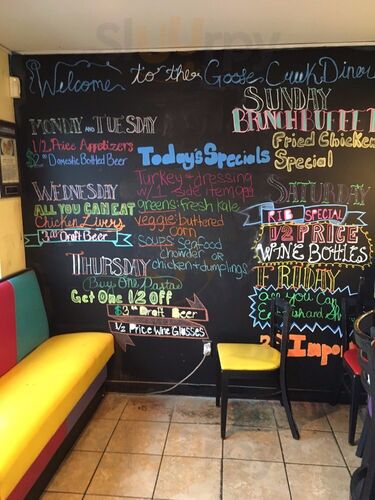 Sluurpy
Welcome to the Goose Creek Diner
MONDAY AND TUESDAY
1/2 Price Appetizers
$2.00 Domestic Bottled Beer
WEDNESDAY
ALL YOU CAN EAT
Chicken Livers
Draft Beer
THURSDAY
Buy One Pasta
Get One 1/2 OFF
Draft Beer
1/2 Price Wine Glasses
Todays Specials
Turkey + dressing
w/ 1 side item
greens: fresh kale,
veggie: buttered
corn
soups: seafood
chowder or
chicken + dumplings
SUNDAY
BRUNCH BUFFET
Fried Chicken
Special
SATURDAY
RIB SPECIAL
1/2 PRICE
WINE BOTTLES
FRIDAY
all you Can
Eat Fish and
Impo